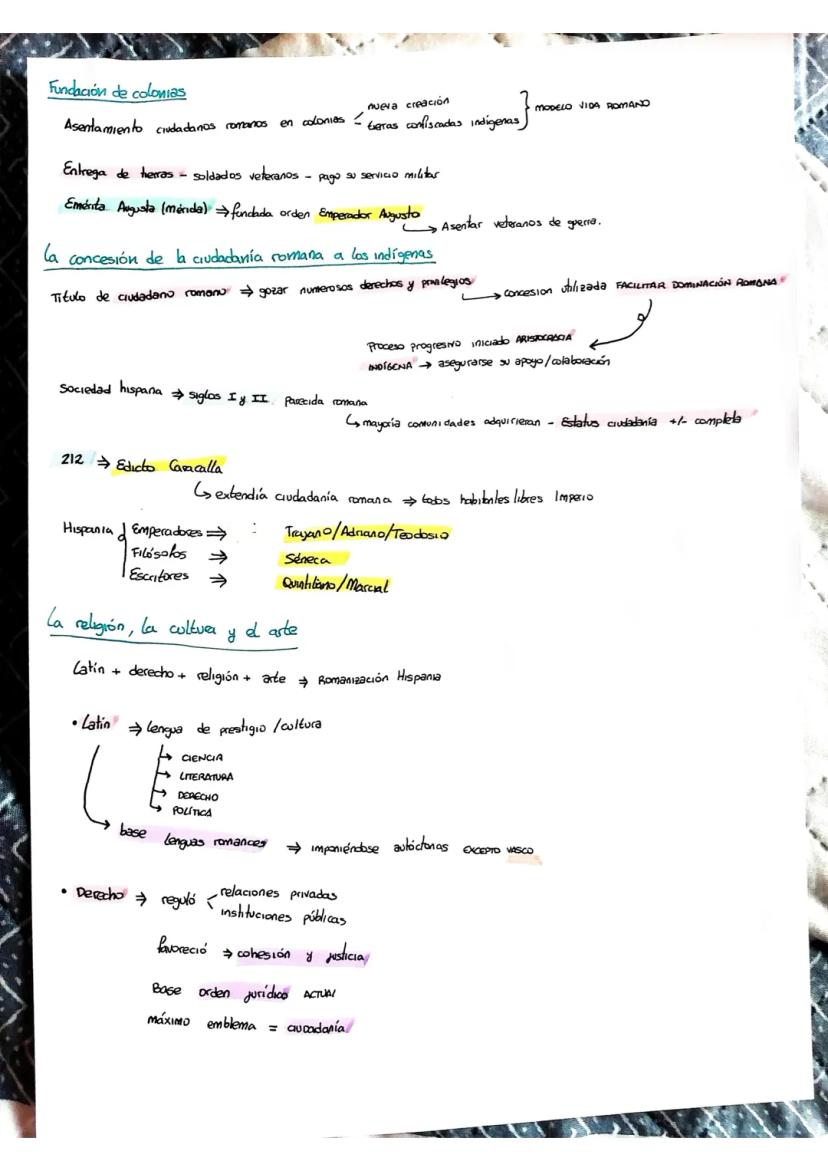 Fundación de colonias
nueva creación
Asentamiento ciudadanos romanos en colonias < tierras confiscadas indígenas } MODELO VIDA ROMANO
Entrega de tierras - soldados veteranos - pago su servicio militar
Emérita Augusta (mérida) ⇒ fundada orden Emperador Augusto
↳ Asentar veteranos de guerra.
La concesión de la ciudadanía romana a los indígenas
Título de ciudadano romano ⇒ gozar numerosos derechos y privilegios
↳ concesion utilizada FACILITAR DOMINACIÓN ROMANA
Proceso progresivo iniciado ARISTOCRACIA
INDÍGENA → asegurarse su apoyo/colaboración
Sociedad hispana ⇒ siglos I y II parecida romana
↳ mayoría comunidades adquirieran - Estatus ciudadanía +/- completa
212 ⇒ Edicto Caracalla
↳ extendía ciudadanía romana ⇒ todos habitantes libres Imperio
Hispania Emperadores ⇒ : Trajano/Adriano/Teodosio
Filósofos ⇒ Séneca
Escritores ⇒ Quintiliano/Marcial
La religión, la cultura y el arte
Latín + derecho + religión + arte ⇒ Romanización Hispania
• Latín ⇒ lengua de prestigio/cultura
→ CIENCIA
→ LITERATURA
→ DERECHO
→ POLÍTICA
→ base lenguas romances ⇒ imponiéndose autóctonas EXCEPTO VASCO
• Derecho ⇒ reguló < relaciones privadas
instituciones públicas
favoreció ⇒ cohesión y justicia
Base orden jurídico ACTUAL
máximo emblema = ciudadanía